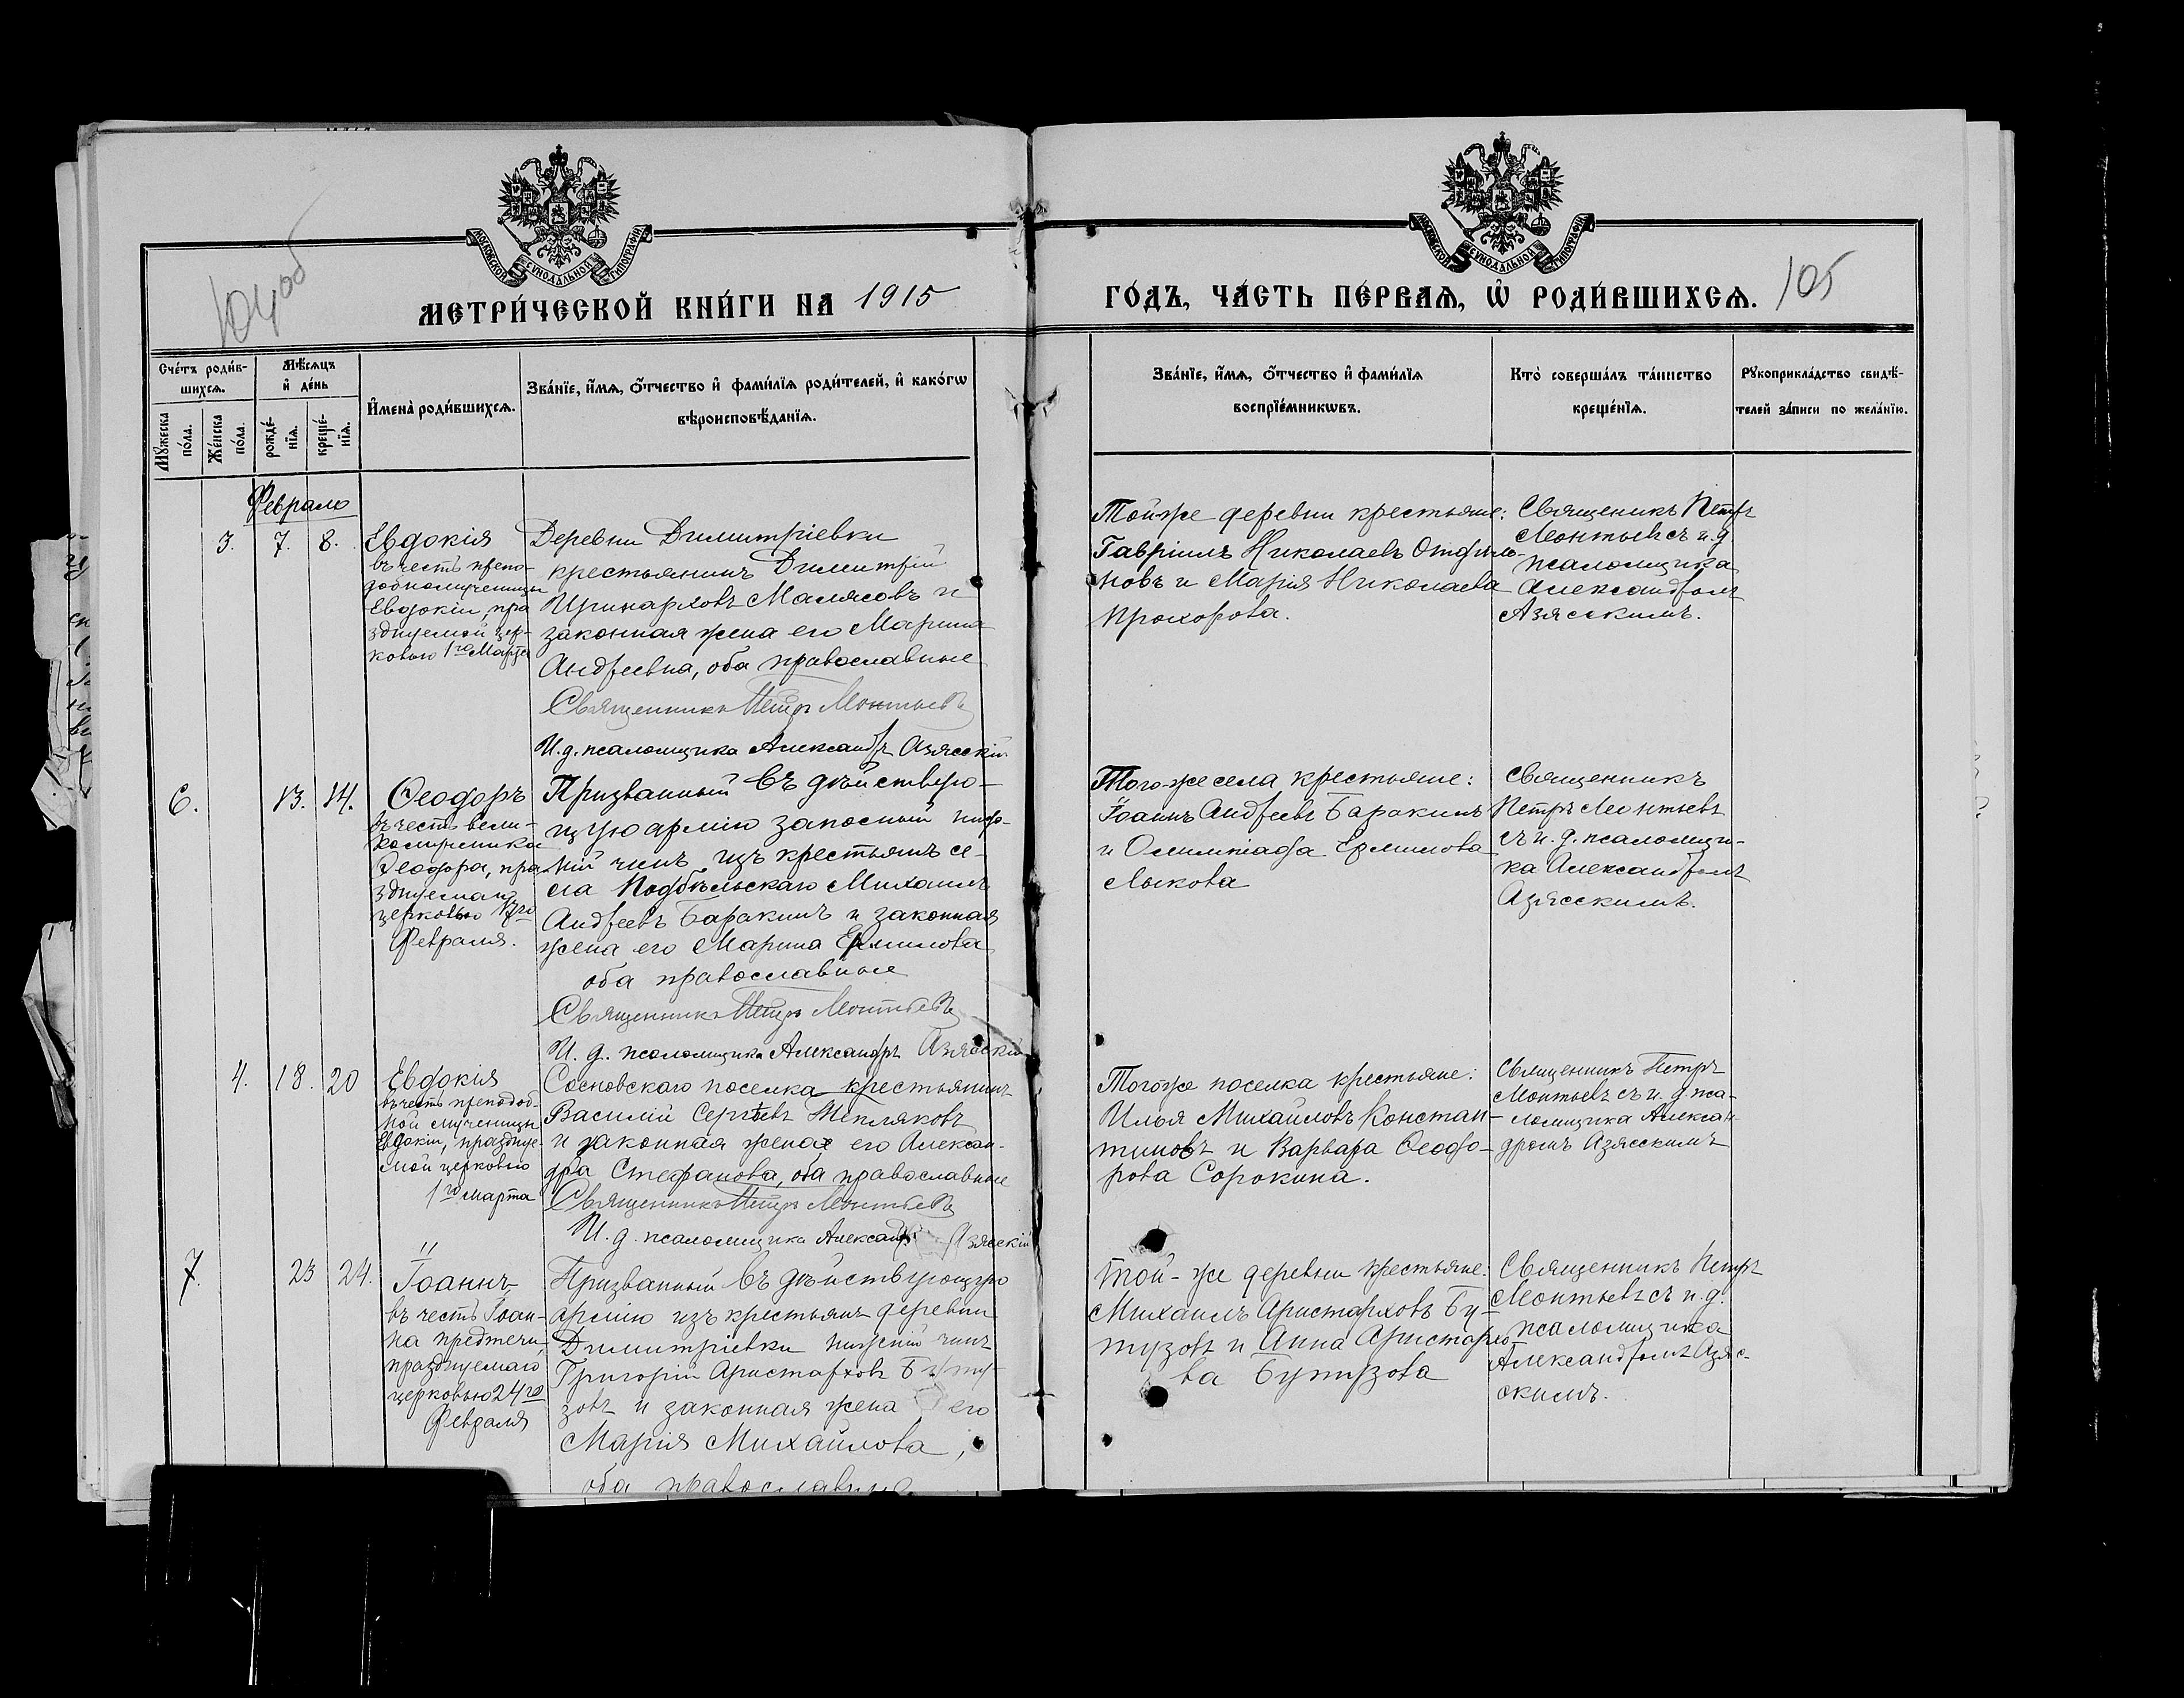 МОСКОВСКОЙ СѴНОДАЛЬНОЙ ТИПОГРАФИИ
МОСКОВСКОЙ СѴНОДАЛЬНОЙ ТИПОГРАФИИ
МЕТРИ́ЧЕСКОЙ КНИ́ГИ НА 1915
ГО́ДЪ, ЧА́СТЬ ПЕ́РВАѦ, Ѡ҆ РОДИ́ВШИХСѦ. 105
Сче́тъ роди́в-
шихсѧ.
Мѣ́сѧцъ
и҆ де́нь
Мꙋ́жеска
по́ла.
Же́нска
по́ла.
рожде́-
нїѧ.
креще́-
нїѧ.
И҆мена̀ роди́вшихсѧ.
Зва́нїе, и҆́мѧ, ѻ҆́тчество и҆ фами́лїѧ роди́телей, и҆ како́гѡ
вѣроисповѣ́данїѧ.
Зва́нїе, и҆́мѧ, ѻ҆́тчество и҆ фами́лїѧ
воспрїе́мникѡвъ.
Кто̀ соверша́лъ та́инство
креще́нїѧ.
Рꙋкоприкла́дство свидѣ́-
телей за́писи по жела́нїю.
Февраль
3. 7. 8.
Евдокія
въ честь препо-
добномученицы
Евдокіи, пра
зднуемой цер-
ковью 1го Марта
Деревни Димитріевки
крестьянинъ Димитрій
Иринарховъ Малясовъ и
законная жена его Марина
Андреевна, оба православные
Священникъ Петръ Леонтьевъ
И.д. псаломщика Александръ Азясскій
Той-же деревни крестьяне:
Гавріилъ Николаевъ
новъ и Марія Николаева
Прохорова.
Священникъ Петръ
Леонтьевъ съ и.д
псаломщика
Александромъ
Азясскимъ.
6. 13. 14.
Ѳеодоръ
въ честь вели-
комученика
Ѳеодора, пра
зднуемаго
церковью 17го
Февраля.
Призванный въ дѣйствую-
щую армію запасный ниж-
ній чинъ изъ крестьянъ се-
ла Подбѣльскаго Михаилъ
Андреевъ Баракинъ и законная
жена его Марина Ермилова
оба православные
Священникъ Петръ Леонтьевъ
И. д. псаломщика Александръ Азясскій
Того-же села крестьяне:
Іоаннъ Андреевъ Баракинъ
и Олимпіада Ермилова
Лыкова
Священникъ
Петръ Леонтьевъ
съ и. д. псаломщи-
ка Александромъ
Азясскимъ.
4. 18. 20
Евдокія
въ честь преподоб-
ной мученицы
Евдокіи, празднуе-
мой церковью
1го марта
Сосновскаго поселка крестьянинъ
Василій Сергѣевъ Тепляковъ
и законная жена его Алексан-
дра Стефанова, оба православные
Священникъ Петръ Леонтьевъ
И. д. псаломщика Александръ Азясскій
Того-же поселка крестьяне:
Илья Михайловъ Констан-
тиновъ и Варвара Ѳеодо-
рова Сорокина.
Священникъ Петръ
Леонтьевъ съ и. д пса-
ломщика Алексан-
дромъ Азясскимъ
7. 23 24.
Іоаннъ
въ честь Іоан-
на предтечи,
празднуемаго
церковью 24го
Февраля
Призванный въ дѣйствующую
армію изъ крестьянъ деревни
Димитріевки нижній чинъ
Григорій Аристарховъ Буту-
зовъ и законная жена его
Марія Михайлова,
оба православные
Той-же деревни крестьяне:
Михаилъ Аристарховъ Бу-
тузовъ и Анна Аристархо-
ва Бутузова
Священникъ Петръ
Леонтьевъ съ и.д.
псаломщика
Александромъ Азяс-
скимъ.